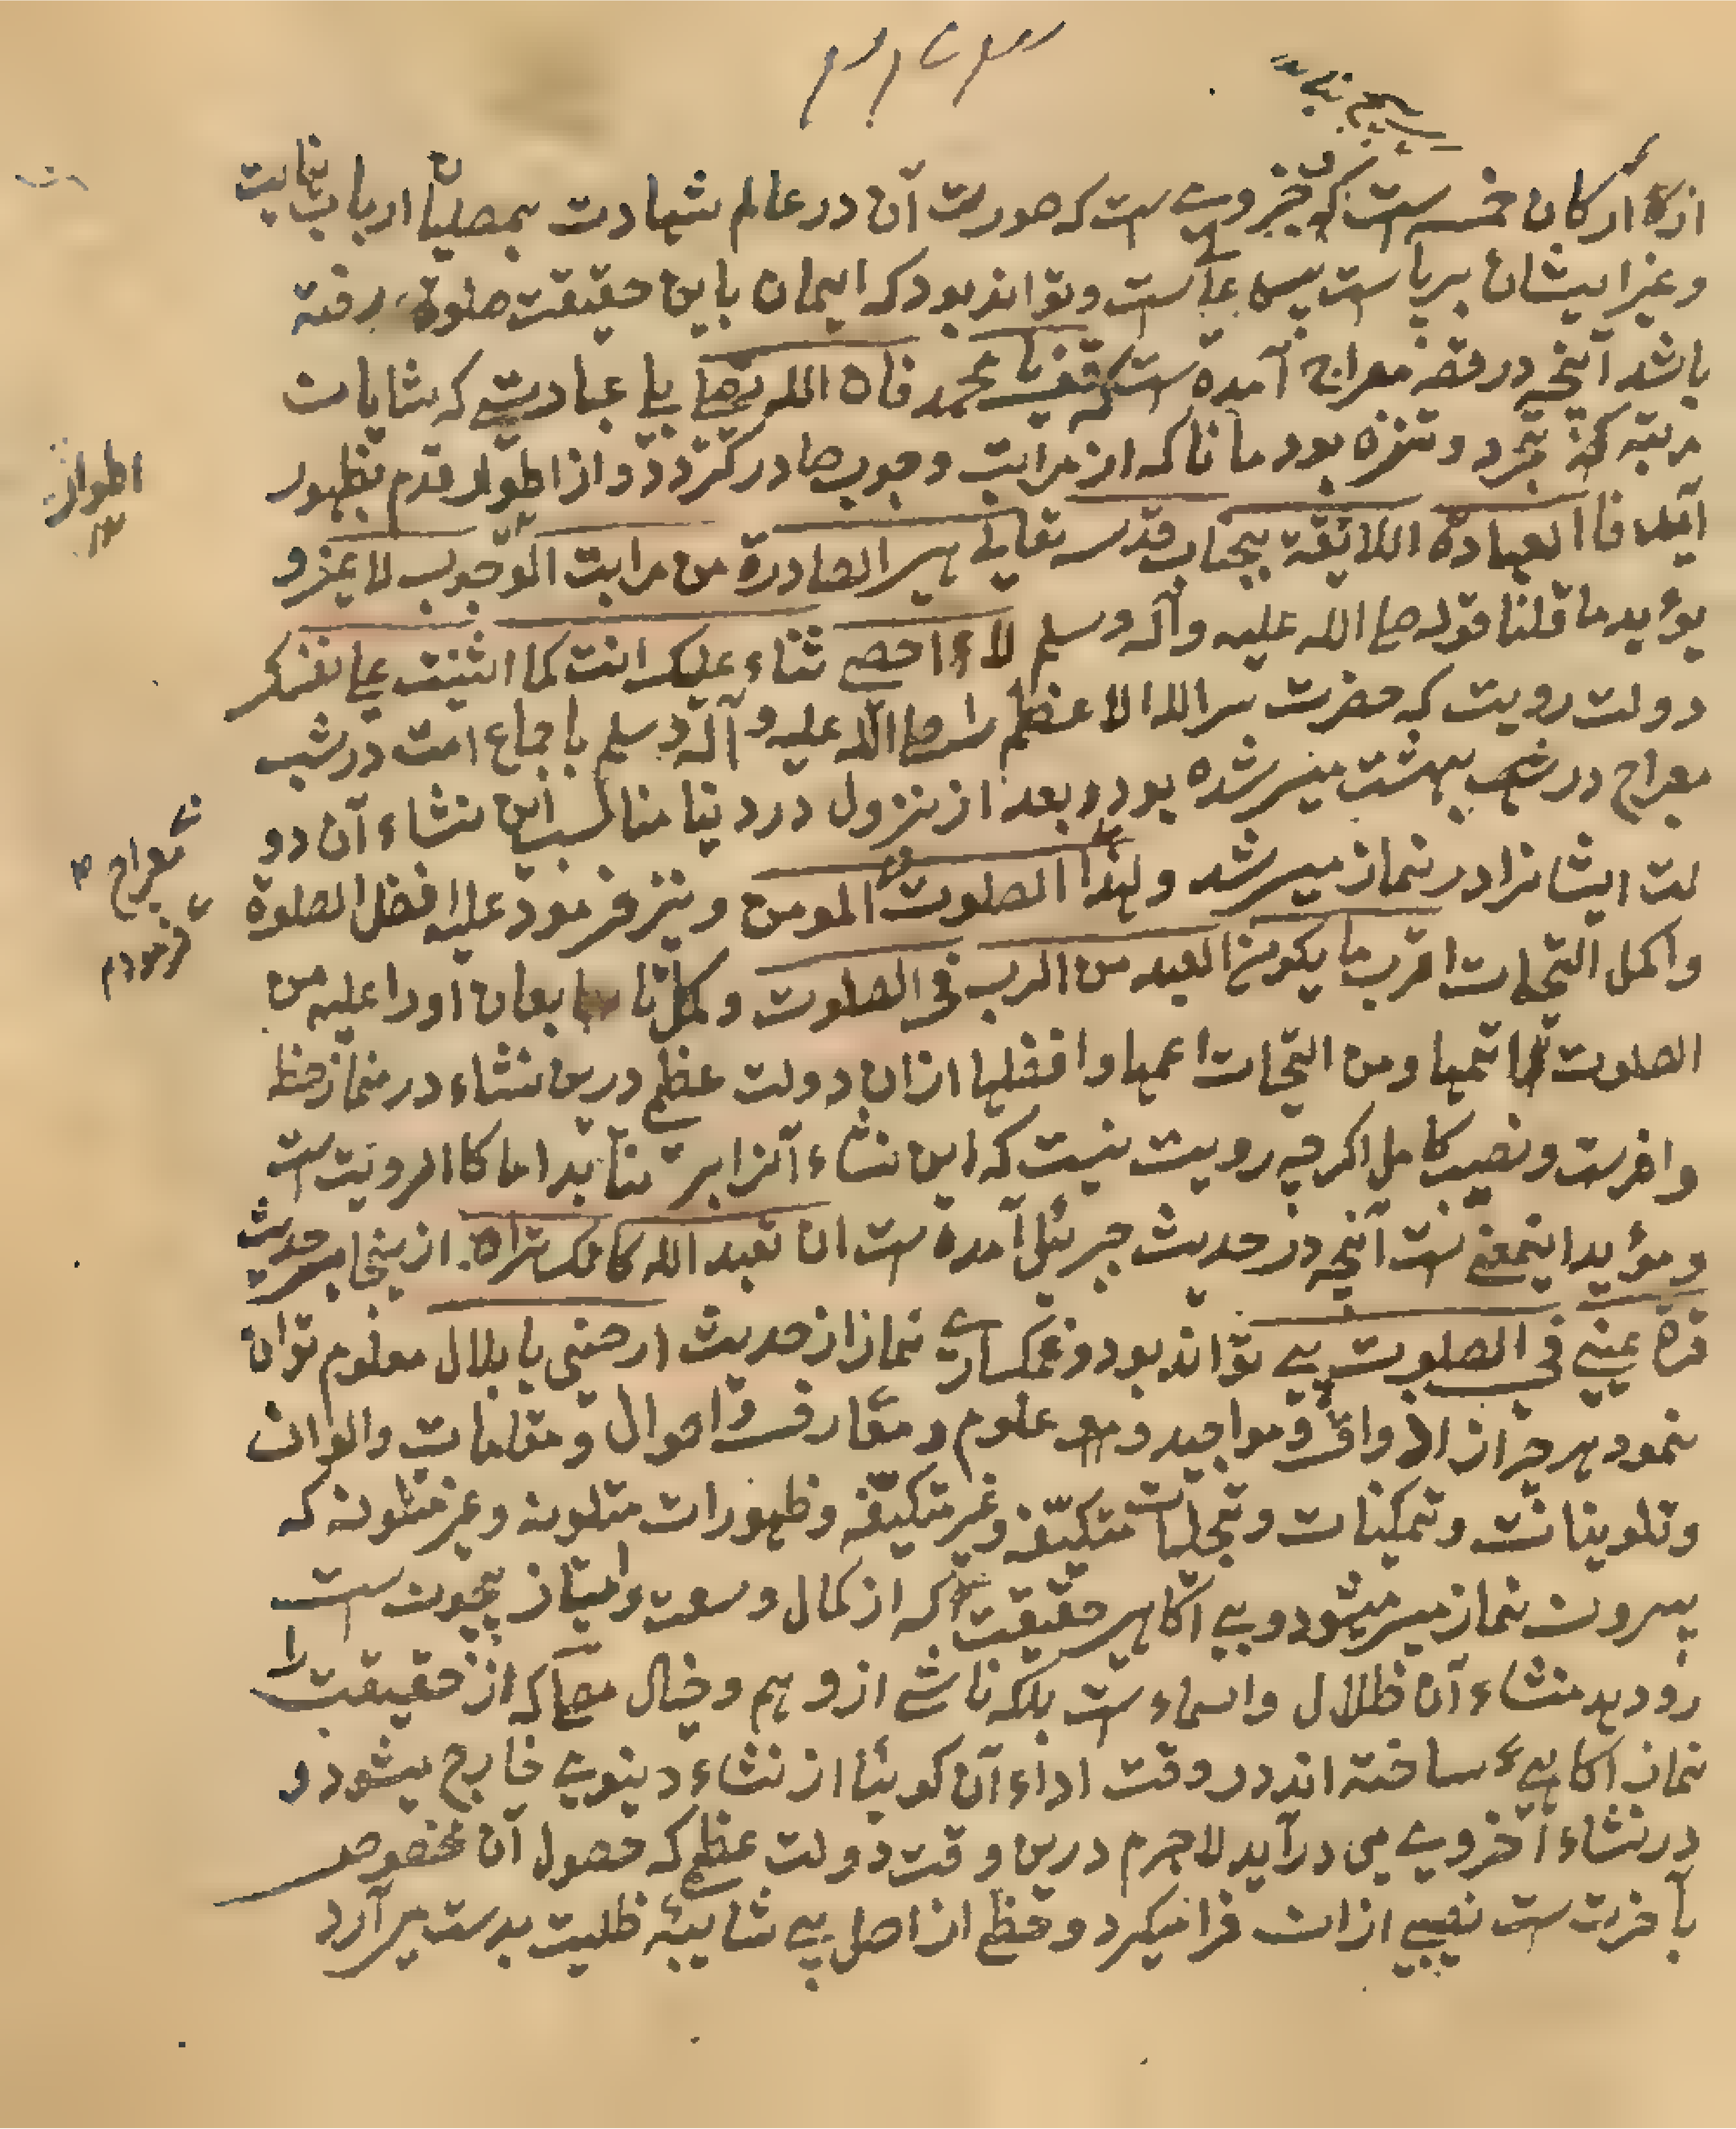 از ارکان خمسه است که جزوے ست که صورت آن در عالم شهادت بمصلیان ارباب نهایت
وغیر ایشان برپاست پس علیا ست وتواند بود که ایمان باین حقیقت صلوة رفته
باشد آنچه در قصه معراج آمده ست که قف یا محمد فان الله یصلی یا عبادتے که شایان
مرتبه تجرد وتنزه بود مانا که از مراتب وجوب صادر گردد واز اطوار قدم بظهور
آید فا العبادة اللائقة بجناب قدسه تعالے هی الصادرة من مراتب الوجوب لا غیر و
یؤید ما قلنا قوله صلی الله علیه وآله وسلم لا احصے ثناء علیک انت کما اثنیت علی نفسک
دولت رویت که حضرت سر الله الاعظم را صلی الله علیه و آله وسلم باجماع امت در شب
معراج در بهشت میسر شده بود وبعد از نزول در دنیا مناسب این نشاء آن دو
لت ایشانرا در نماز میسر شد ولهذا الصلوت المومن ونیز فرمود علیه افضل الصلوة
واکمل التحیات اقرب ما یکون العبد من الرب فی الصلوت وکمل تابعان اورا علیه من
الصلوت اتمها ومن التحیات اعمها وافضلها ازان دولت عظمی درین نشاء در نماز حظ
وافرست ونصیب کامل اگرچه رویت نیست که این نشاء آنرا بر نتابد اما کا الرویت ست
ومؤید اینمعنے ست آنچه در حدیث جبرئیل آمده ست ان تعبد الله کانک تراه از ینجا سر حدیث
قرة عینے فی الصلوت پے تواند بود وغمگسارے نماز از حدیث ارحنی یا بلال معلوم توان
نمود هرچه از اذواق ومواجید و علوم ومعارف واحوال ومقامات والوان
وتلوینات وتمکینات وتجلیات متکیفه وغیر متکیفه وظهورات متلونه وغیر متلونه که
بیرون نماز میسر میشود وبے آگاهی حقیقت که از کمال وسعت وامتیاز بیچون ست
رو دهد منشاء آن ظلال واسماء ست بلکه ناشے از وهم وخیال مصلی که از حقیقت
نماز آگاهے ساخته اند در وقت اداء آن گوئیا از نشاء دینوے خارج میشود و
در نشاء آخروے می درآید لاجرم درین وقت دولت عظمی که حصول آن مخصوص
بآخرت ست نصیبے ازان فرا میگیرد وحظ از اصل بے شایبۂ ظلیت بدست می آرد
اطوار
معراج
فرمودم